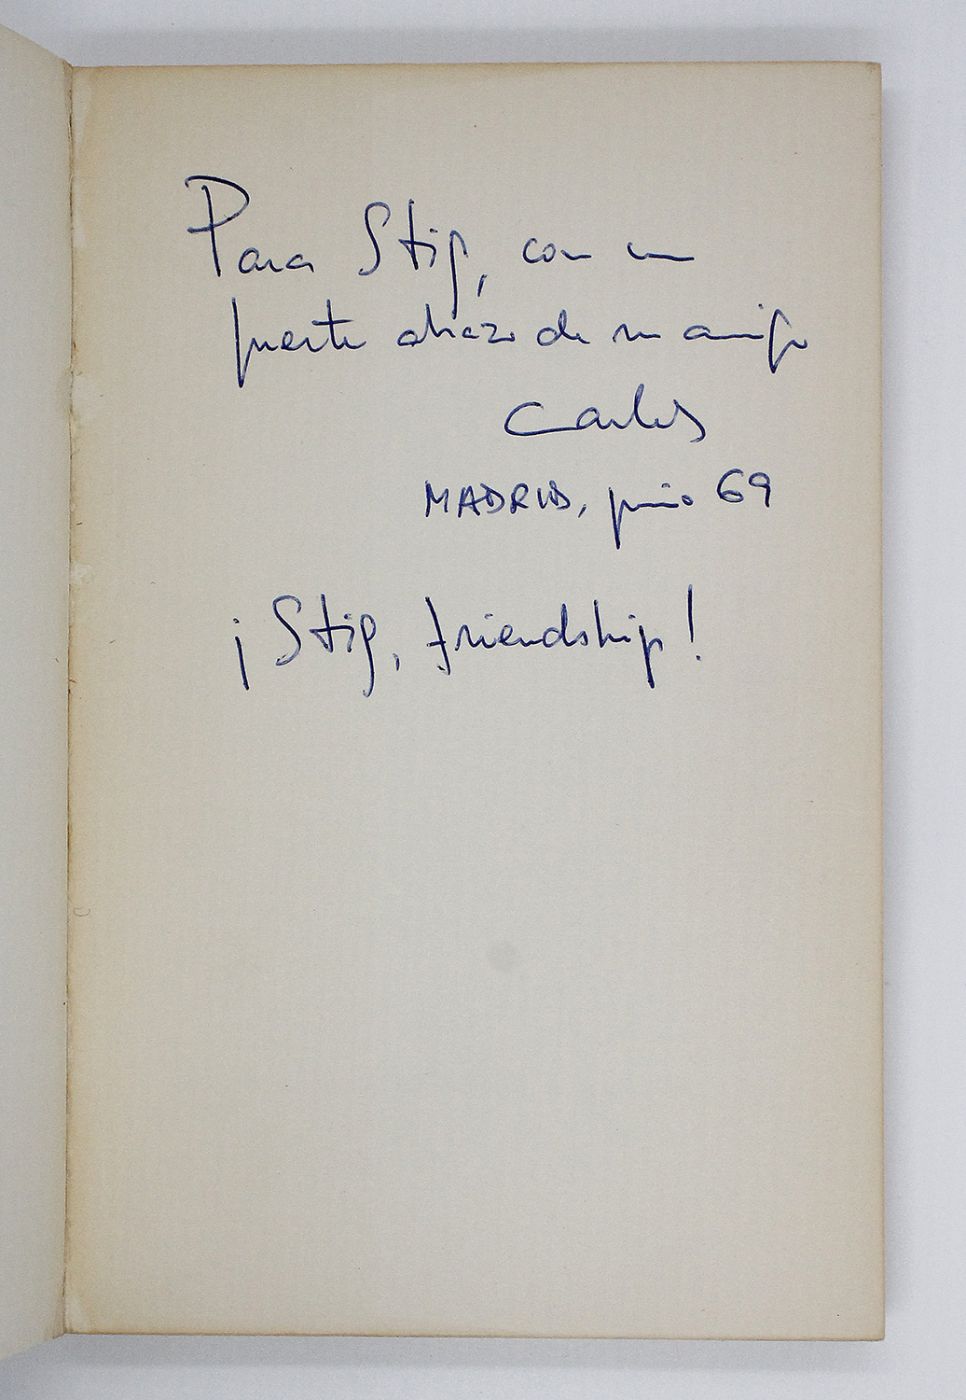 Para Stig, con un
fuerte abrazo de su amigo
Carlos
MADRID, junio 69
¡Stig, friendship!